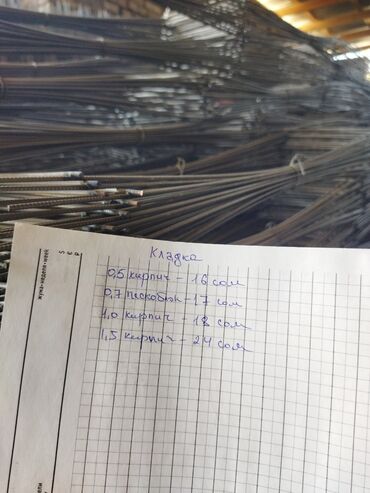 Кладка
0,5 кирпич - 16 сом
0,7 пескоблок - 17 сом
1,0 кирпич - 18 сом
1,5 кирпич - 24 сом